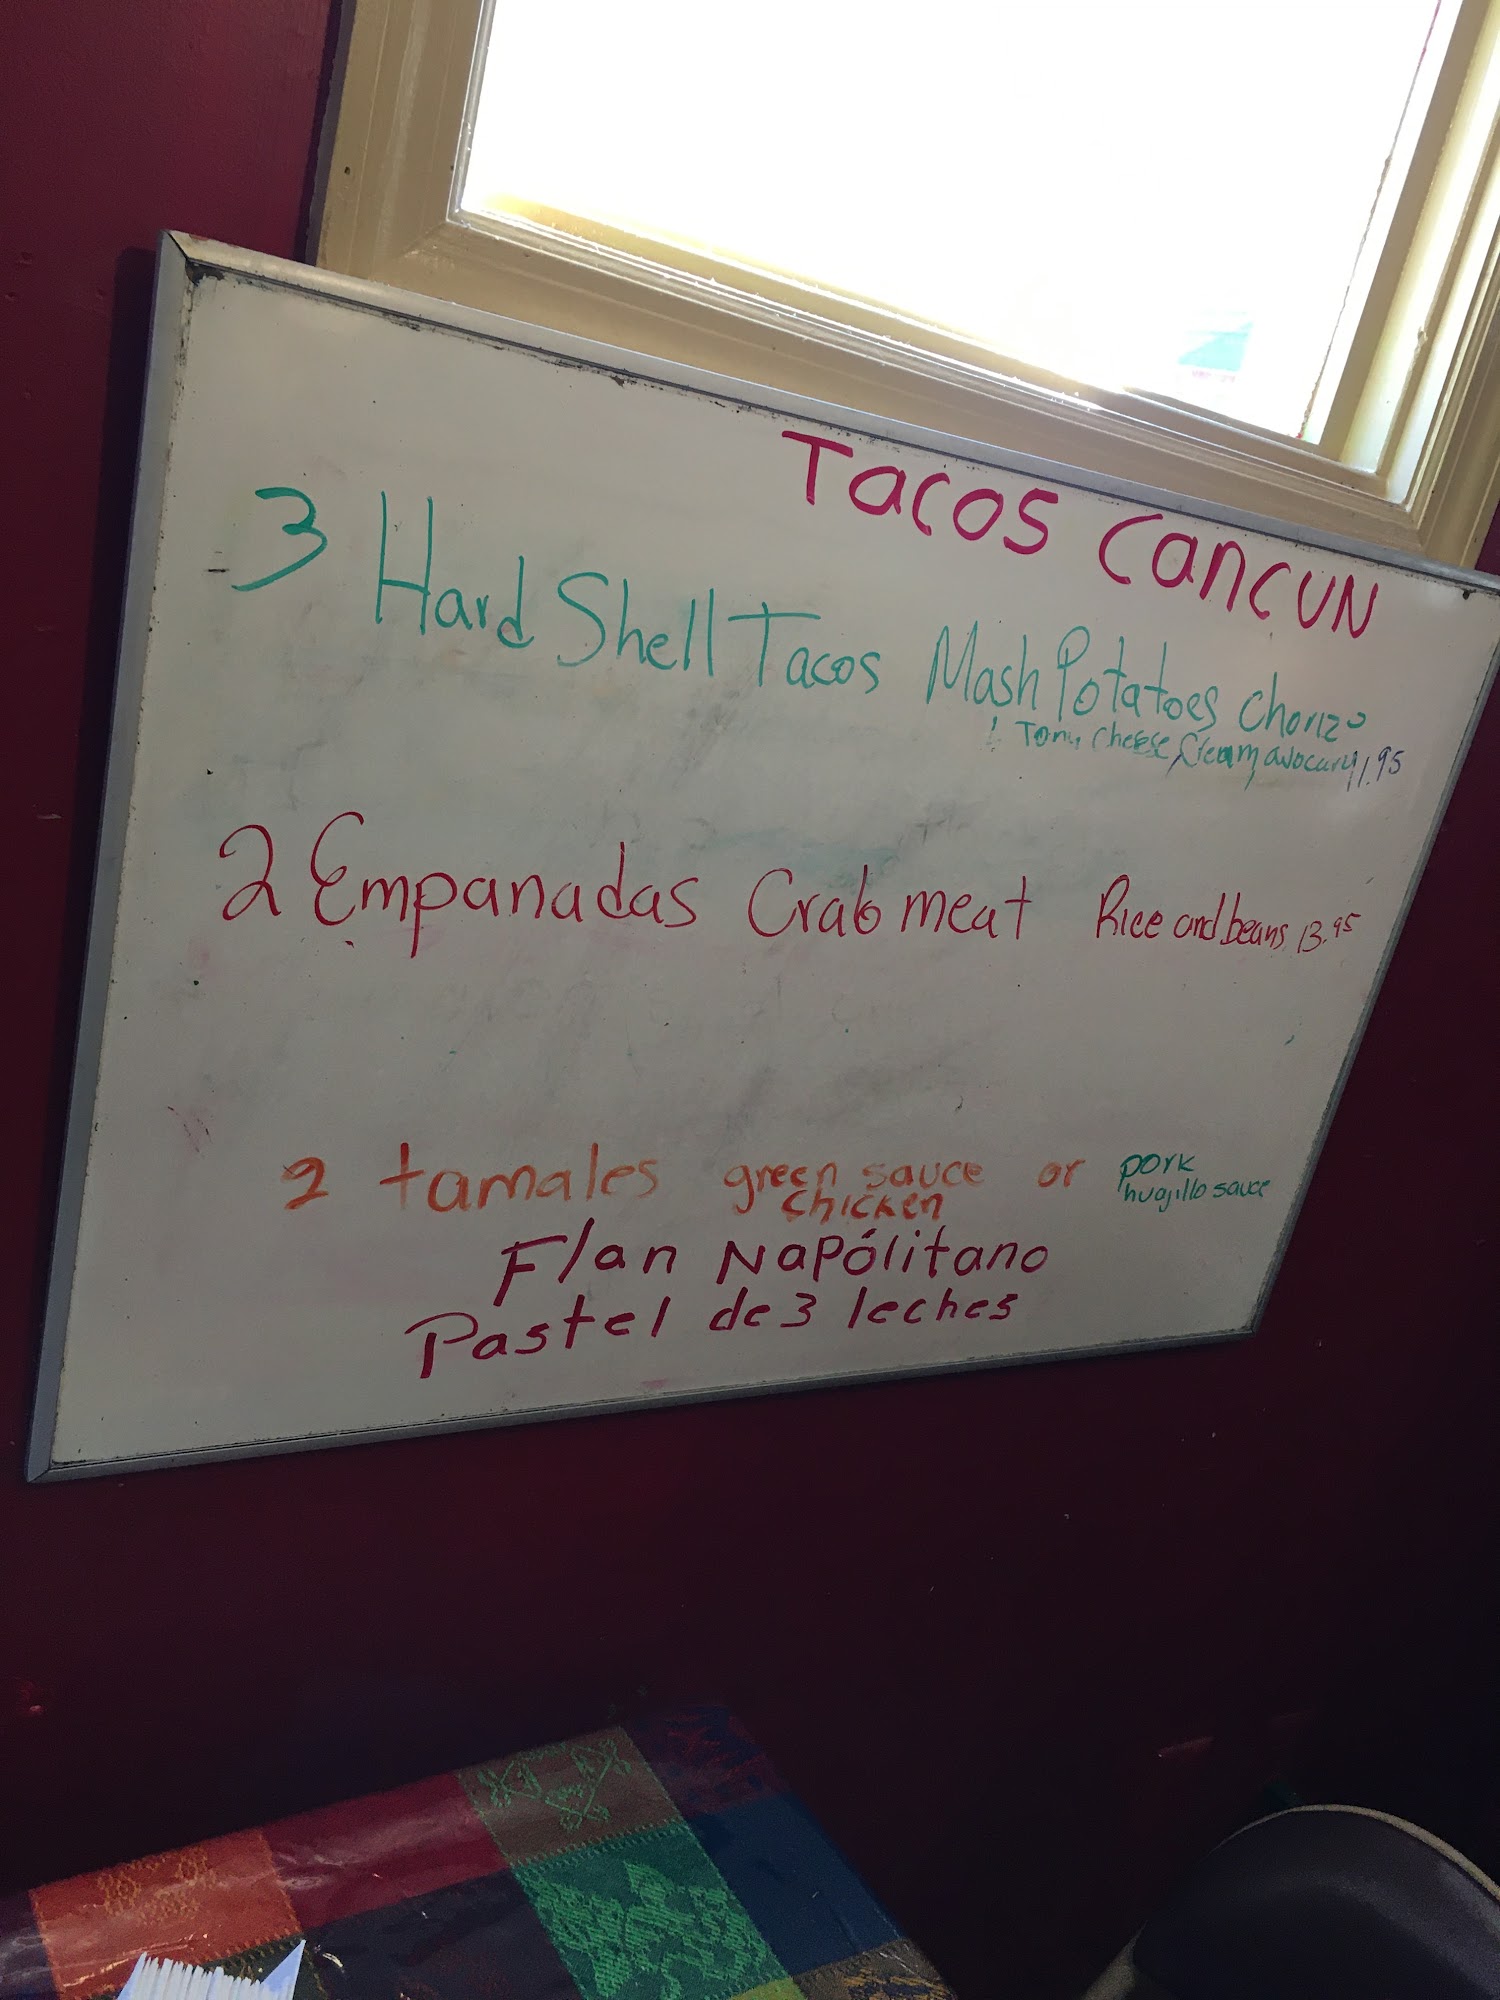 Tacos Cancun
3 Hard Shell Tacos Mash Potatoes Chorizo
Tom, cheese, Cream, avocary 11.95
2 Empanadas Crab meat Rice and beans 13.95
2 tamales green sauce or pork
chicken huajillo sauce
Flan Napólitano
Pastel de 3 leches